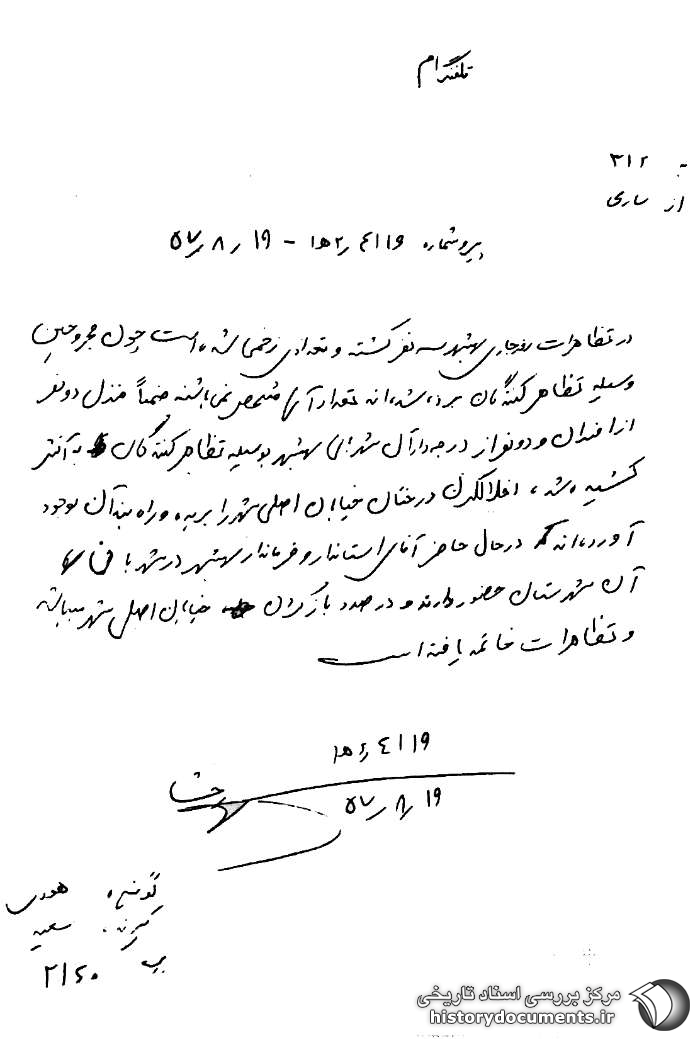 تلفنگرام
به ۳۱۲
از ساری
پیرو شماره ۱۵۲٫۴۱۱۹ - ۵۷٫۸٫۱۹
در تظاهرات بهشهر سه نفر کشته و تعدادی زخمی شده است چون مجروحین
وسیله تظاهر کنندگان برده شده‌اند تعداد آنها مشخص نمی‌باشند ضمناً منزل دو نفر
از افسران و دو نفر از درجه‌داران شهربانی بهشهر بوسیله تظاهر کنندگان به آتش
کشیده شد، اخلالگران درختان خیابان اصلی شهر را بریده و راه بندان بوجود
آورده‌اند که در حال حاضر آقای استاندار و فرماندار بهشهر در شهر با
آن شهرستان حضور دارند و در صدد باز کردن خیابان اصلی شهر میباشند
و تظاهرات خاتمه یافته است
۱۵٫۴۱۱۹
۵۷٫۸٫۱۹
گوینده
گیرنده سعید
۲۱۴۰
مرکز بررسی اسناد تاریخی
historydocuments.ir